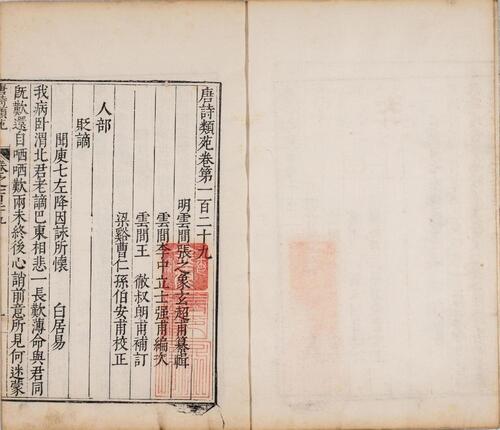 唐詩類苑卷第一百二十九
明雲間張之象玄超甫纂輯
雲間李中立士强甫編次
雲間王徹叔朗甫補訂
梁谿曹仁孫伯安甫校正
人部
貶謫
聞庾七左降因詠所懷 白居易
我病卧渭北君老謫巴東相悲一長歎薄命與君同
既歎還自哂哂歎兩未終後心誚前意所見何迷蒙
唐詩類苑